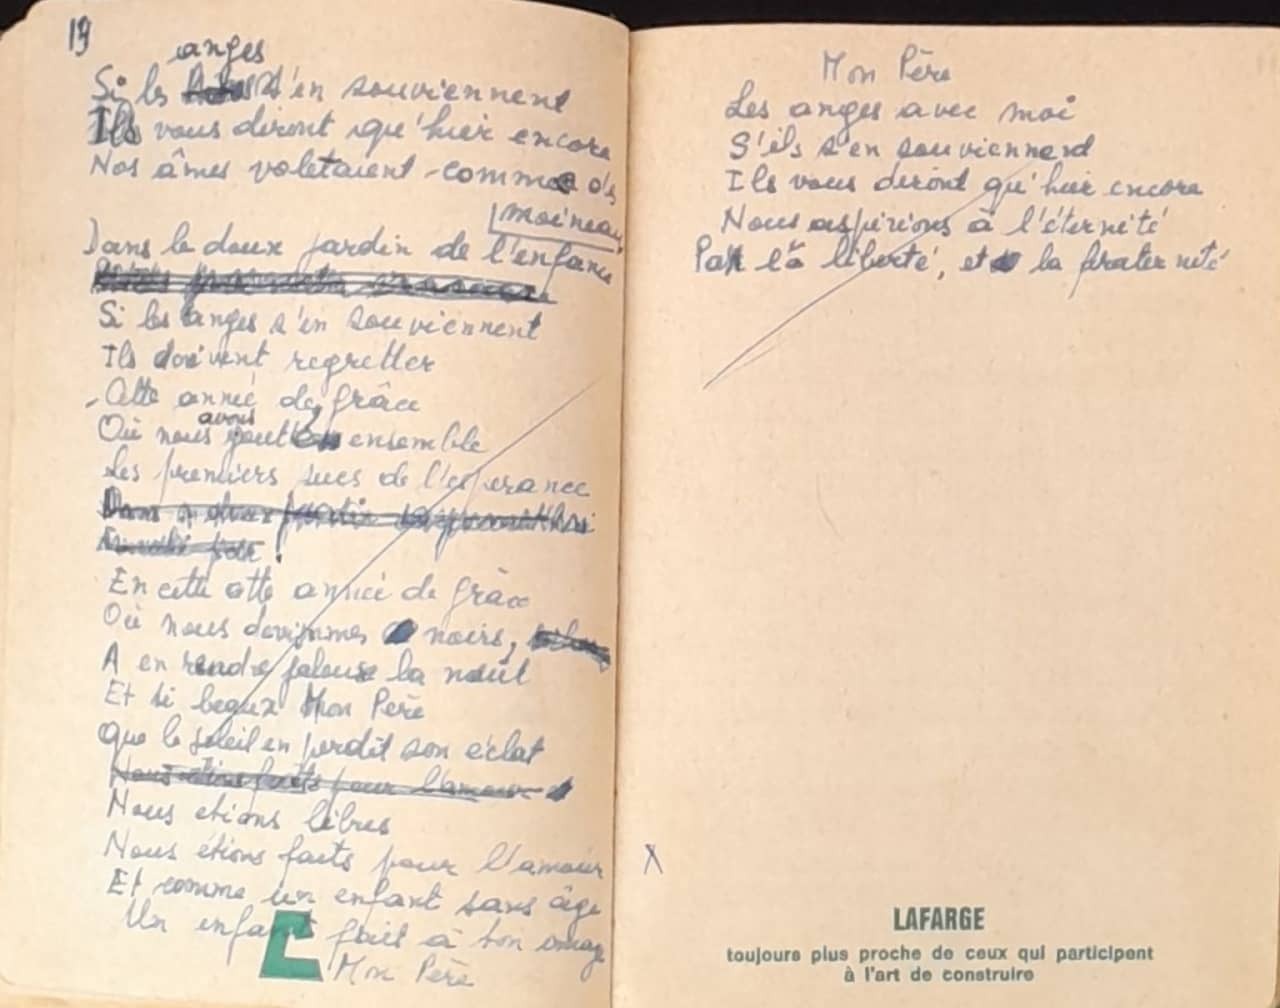 19
anges
Si les s'en souviennent
Ils vous diront qu'hier encore
Nos âmes voletaient comme des
moineau
Dans le doux jardin de l'enfance
Si les anges s'en souviennent
Ils doivent regretter
Cette année de grâce
avons
Où nous gouté ensemble
Les premiers sucs de l'esperance
En cette année de grâce
Où nous devinmes noirs,
A en rendre jalouse la nuit
Et si beaux Mon Père
Que le soleil en perdit son éclat
Nous étions faits pour l'amour
Nous etions libres
Nous étions faits pour l'amour
Et comme un enfant sans âge
Un enfant fait à ton image
Mon Père
Mon Père
Les anges avec moi
S'ils s'en souviennend
Ils vous diront qu'hier encore
Nous aspirions à l'éternité
Par la liberté, et la fraternité
X
LAFARGE
toujours plus proche de ceux qui participent
à l'art de construire